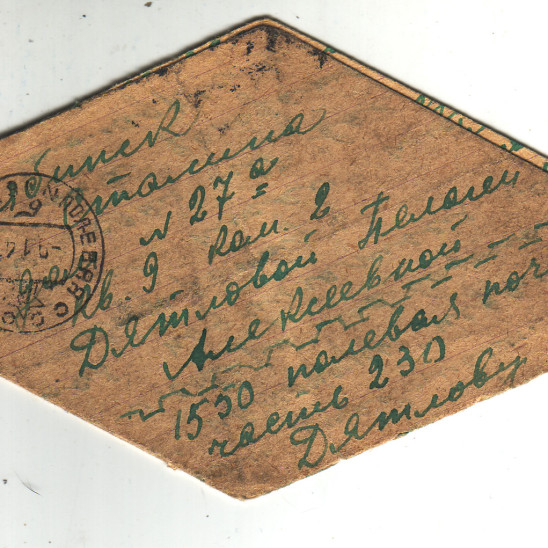 Сталина
N 27а
кв. 9 ком. 2
Дятловой Пелагеи
Алексеевной
1530 полевая поч
часть 230
Дятлову